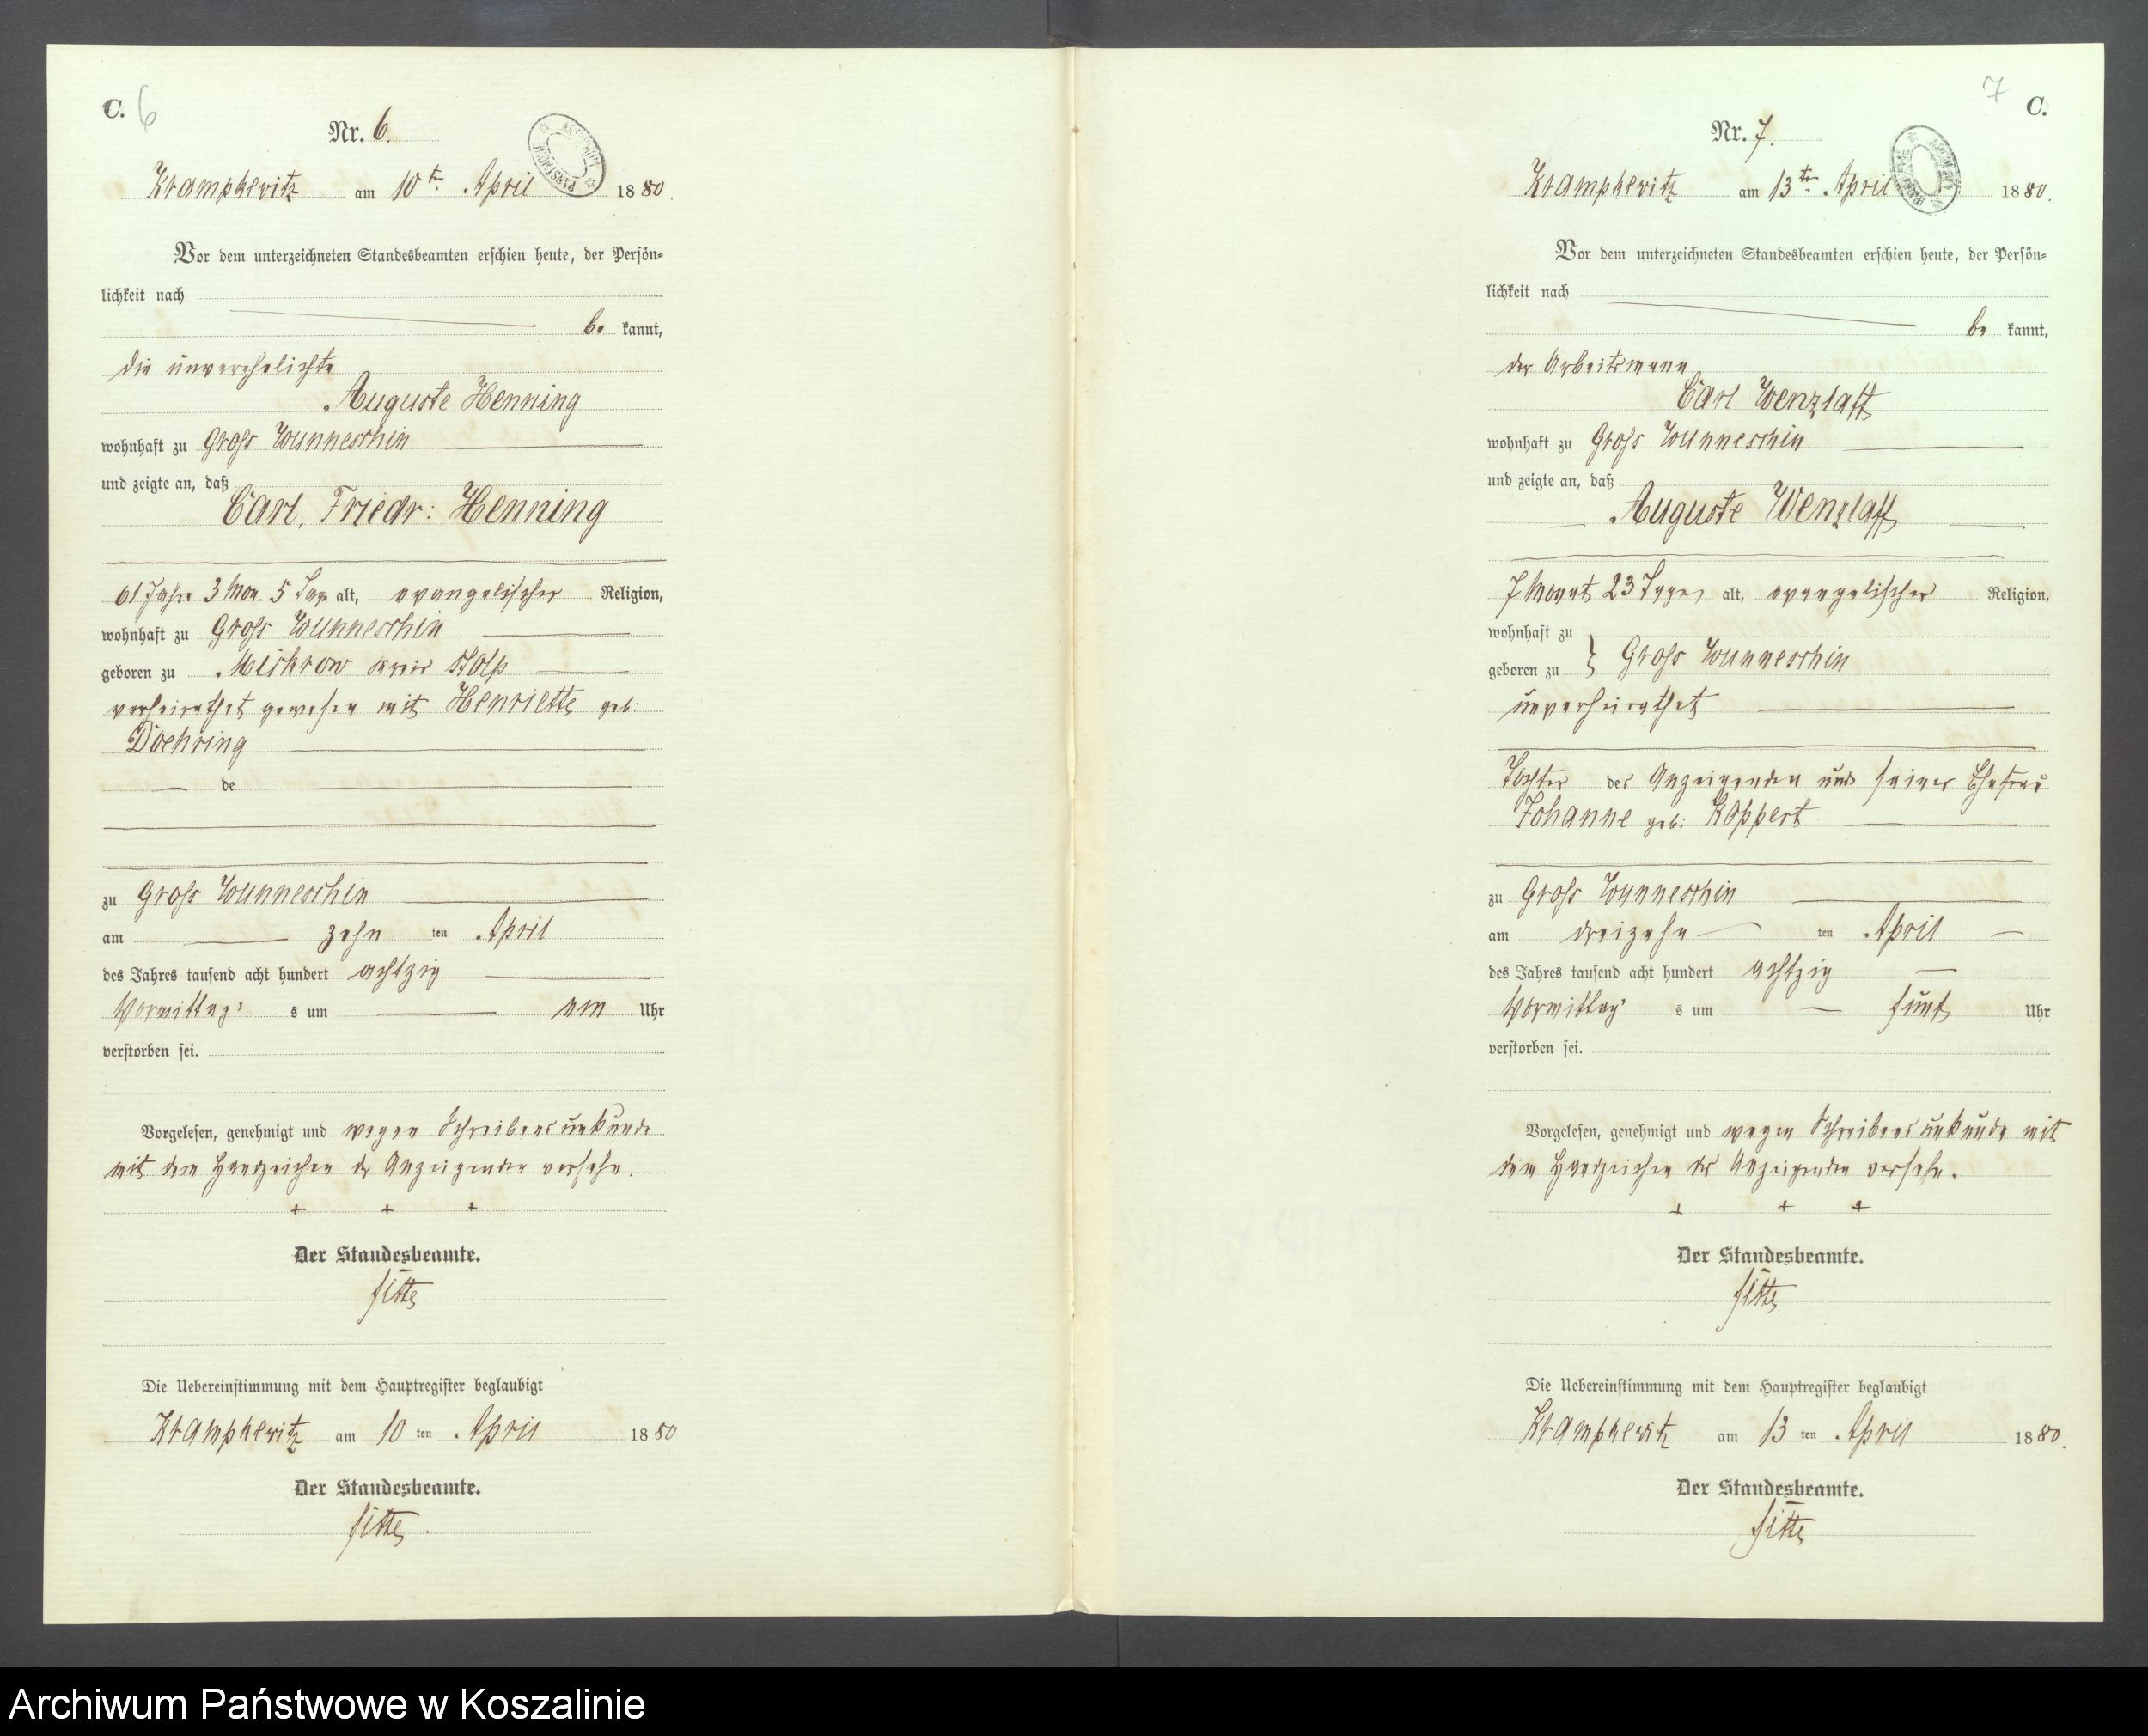 C. 6
Nr. 6.
Krampkewitz am 10ten April 1880.
Vor dem unterzeichneten Standesbeamten erschien heute, der Persön-
lichkeit nach
be kannt,
die unverehelichte
Auguste Henning
wohnhaft zu Groß Wunneschin
und zeigte an, daß
Carl, Friedr: Henning
61 Jahre 3 Mon. 5 Tage alt, evangelischer Religion,
wohnhaft zu Groß Wunneschin
geboren zu Mickrow Kreis Stolp
verheirathet gewesen mit Henriette geb:
Doehring
de
zu Groß Wunneschin
am zehn ten April
des Jahres tausend acht hundert achtzig
Vormittag s um ein Uhr
verstorben sei.
Vorgelesen, genehmigt und wegen Schreibensunkunde
mit dem Handzeichen der Anzeigenden versehn.
+ + +
Der Standesbeamte.
Die Uebereinstimmung mit dem Hauptregister beglaubigt
Krampkewitz am 10 ten April 1880
Der Standesbeamte.
7 C.
Nr. 7.
Krampkewitz am 13ten April 1880.
Vor dem unterzeichneten Standesbeamten erschien heute, der Persön-
lichkeit nach
be kannt,
der Arbeitsmann
Carl Wenzlaff
wohnhaft zu Groß Wunneschin
und zeigte an, daß
Auguste Wenzlaff
7 Monat 23 Tage alt, evangelischer Religion,
wohnhaft zu
geboren zu } Groß Wunneschin
unverheirathet
Tochter des Anzeigenden und seiner Ehefrau
Johanne geb: Koppert
zu Groß Wunneschin
am dreizehn ten April
des Jahres tausend acht hundert achtzig
Vormittag s um fünf Uhr
verstorben sei.
Vorgelesen, genehmigt und wegen Schreibensunkunde mit
dem Handzeichen des Anzeigenden versehn.
+ + +
Der Standesbeamte.
Die Uebereinstimmung mit dem Hauptregister beglaubigt
Krampkewitz am 13 ten April 1880.
Der Standesbeamte.
Archiwum Państwowe w Koszalinie